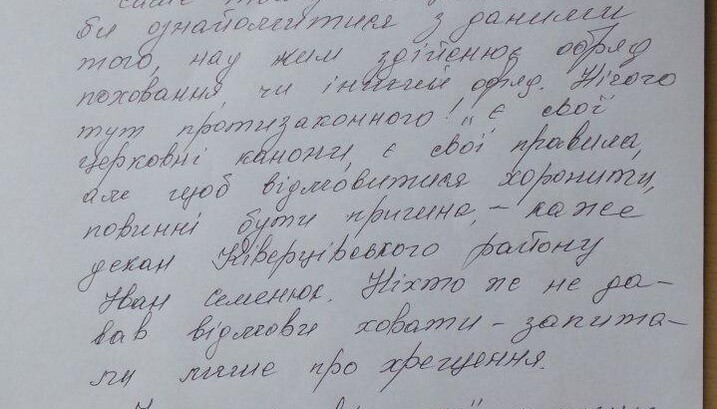 би ознайомитися з даними
того, над ким здійснює обряд
поховання, чи інший обряд. Нічого
тут протизаконного! „Є свої
церковні канони, є свої правила,
але щоб відмовитися хоронити,
повинні бути причина, – каже
декан Ківерцівського району
Іван Семенюк. Ніхто ж не да-
вав відмови ховати – запита-
ли лише про хрещення.